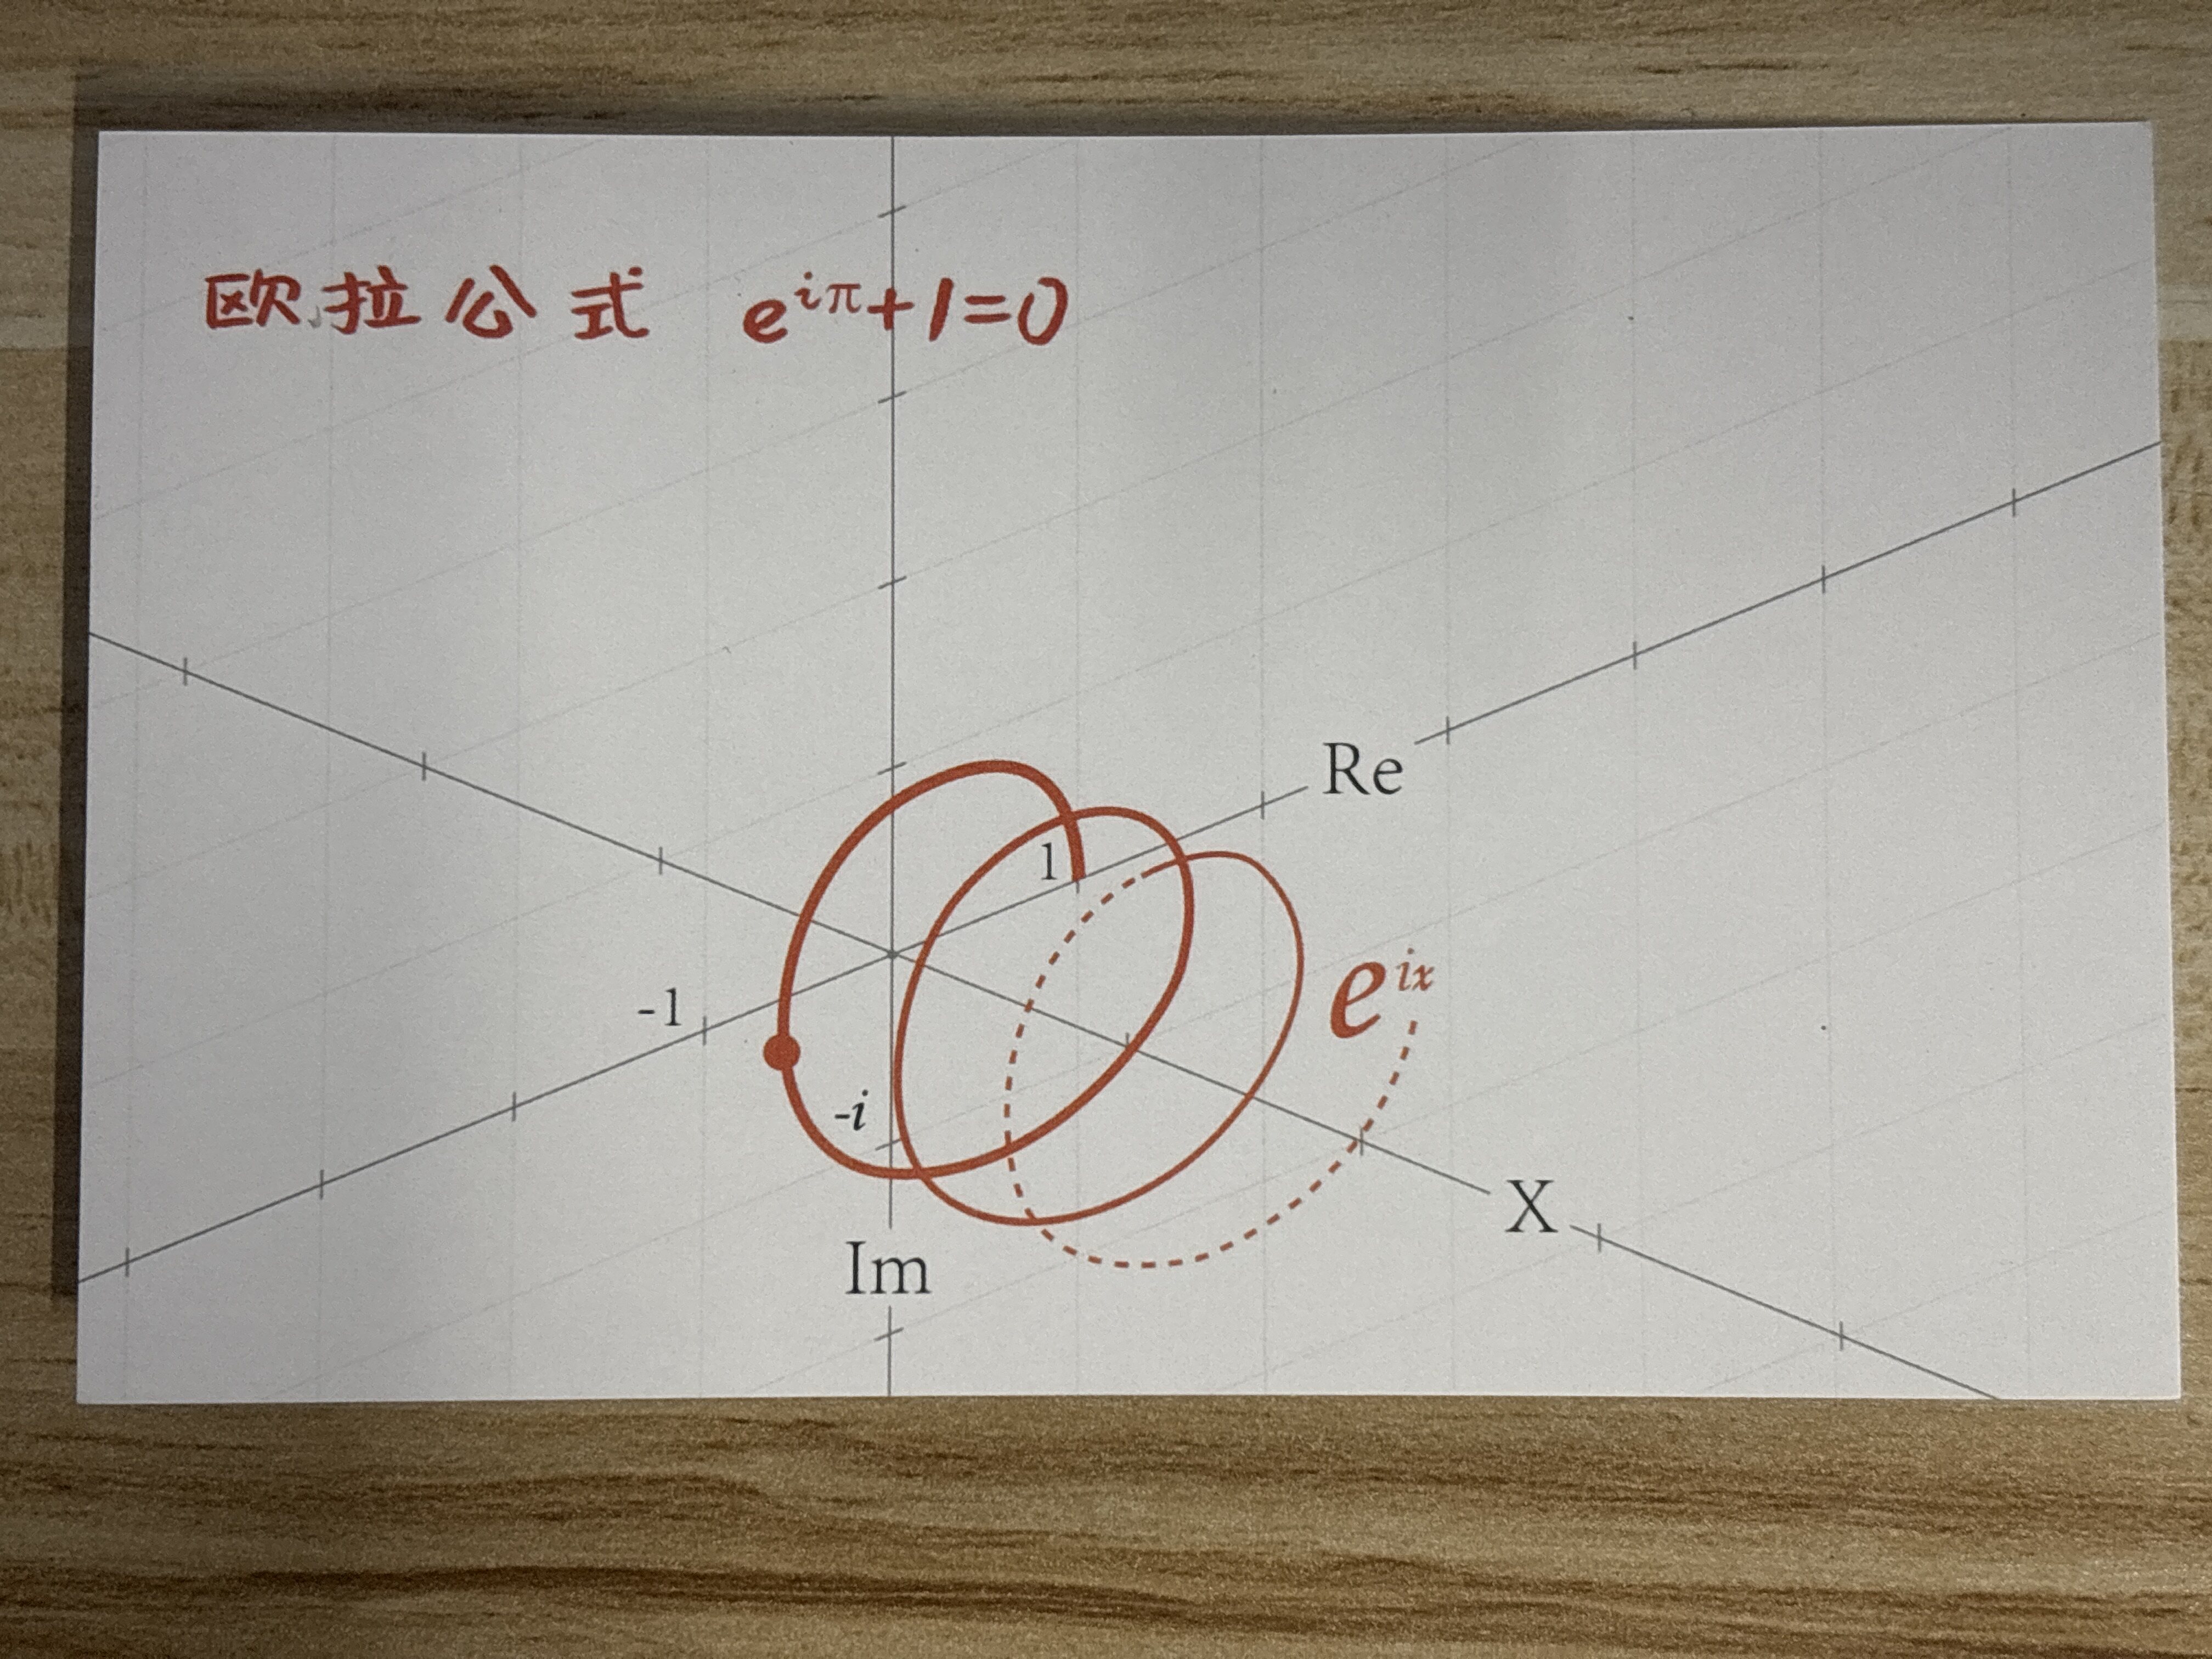 欧拉公式 e^{iπ}+1=0
Re
1
-1
e^{ix}
-i
X
Im